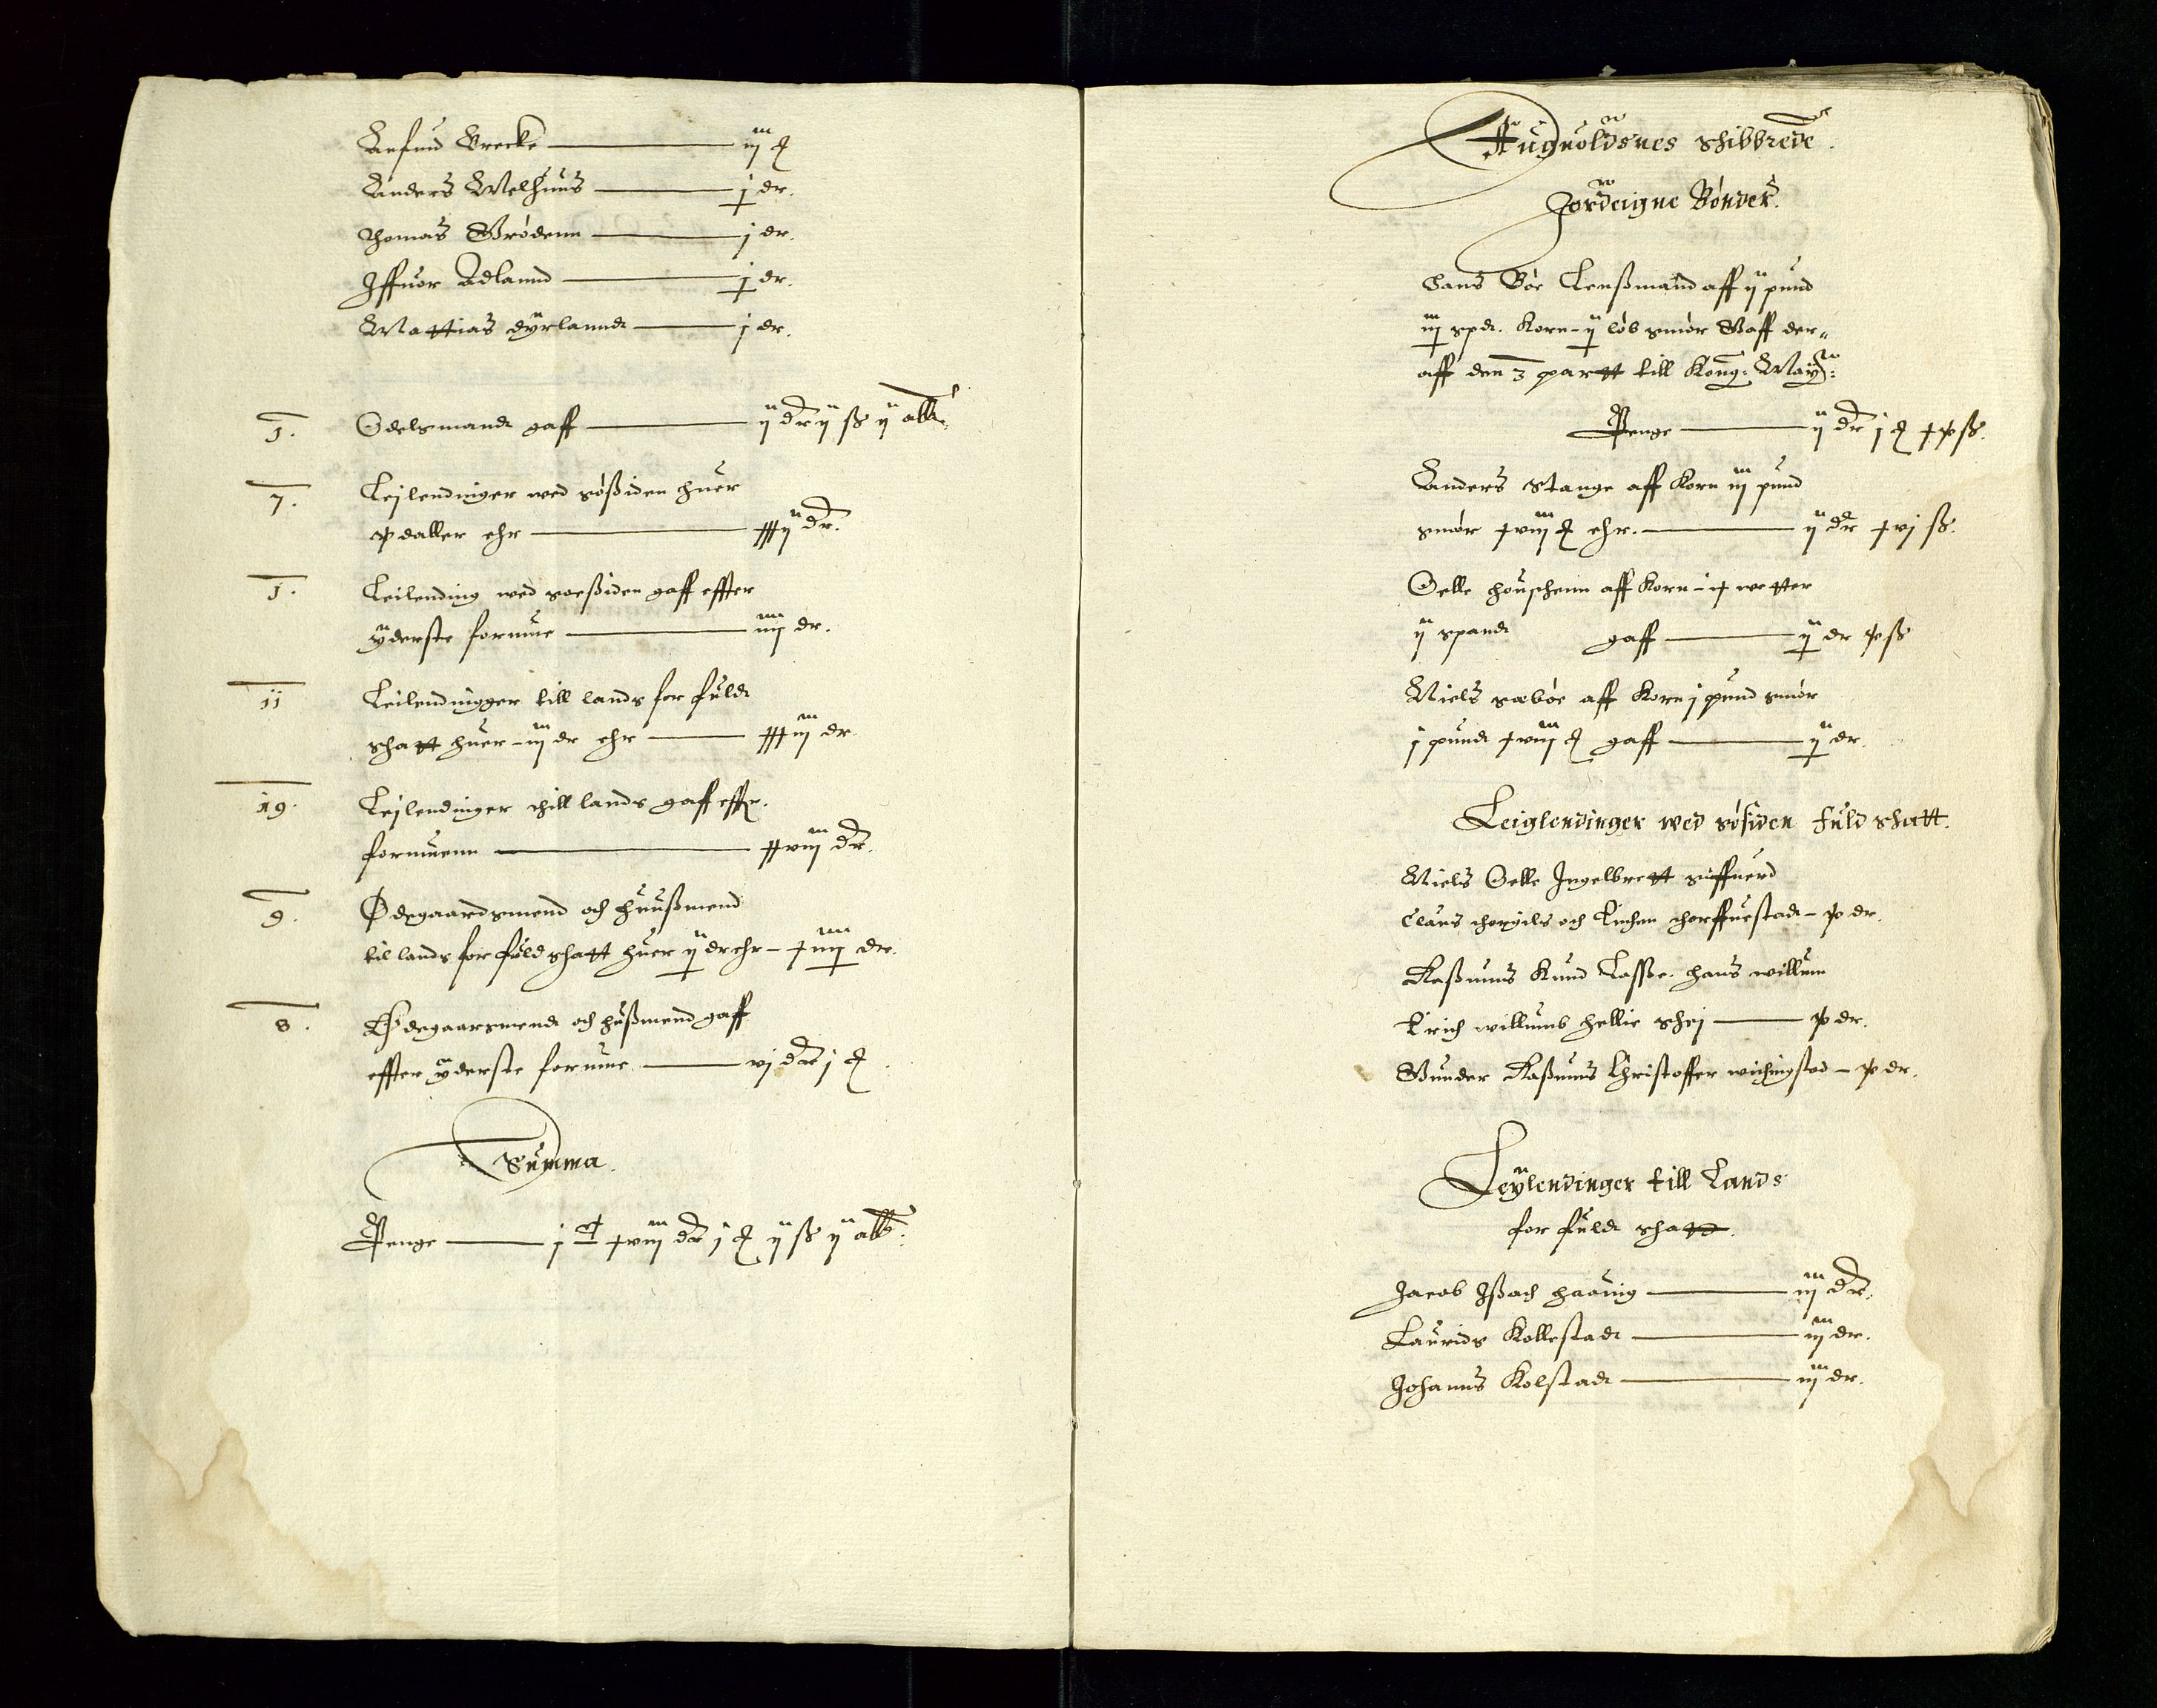 Anfind Brecke — iij ₰
Anders Melhuus — ɉ dr.
Thomas Brødenn — j dr.
Iffuer Adlannd — ɉ dr.
Mattias dÿrlannd — j dr.
1. Odelsmand gaff — ij dr ij ß ij alb.
7. Leilendinger wed søßiden huer
v daller ehr — xxxij dr.
1. Leilending wed soeßiden gaff effter
ÿderste formue — iiij dr.
11 Leilendingger till lands for fuld
shatt huer – iij dr ehr — xxxiij dr.
19. Leilendinger thill lands gaff effter
formuenn — xxviij dr.
9. Ødegaardsmend och huußmend
til lands for fuld shatt huer ij dr ehr – xiiij dr.
8. Ødegaarsmend och hußmend gaff
effter ÿderste formue — vj dr j ₰
Summa.
Penge — j c xviij dr j ₰ ij ß ij alb.
Auguoldsnes shibbrede.
Jordeigne Bønder.
Hans Bøe Lenßmand aff ij pund
iij spd. Korn – ij løb smør Gaff der„
aff den 3 partt till Kong: May:
Penge — ij dr j ₰ xv ß.
Anders Stange aff Korn iij pund
smør xviij ₰ ehr. — ij dr xvj ß.
Oelle houshenn aff Korn – ix wetter
ij spand gaff — ij dr v ß
Niels sæbøe aff Korn j pund smør
j pund xviij ₰ gaff — ij dr.
Leiglendinger wed søsiden fuld shatt.
Niels Oelle Ingelbrett siffuerd
Claus thorgils och Erichen thorffuestad – v dr.
Raßmus Knud Lasse. hans willum
Erich willumb hellie shej — v dr.
Gunder Raßmus Christoffer wichingstad – v dr.
Leÿlendinger till Lands
for fuld shatt.
Jacob Ißach haauig — iij dr.
Laurids Kollestad — iij dr.
Johanns Kolstad — iij dr.